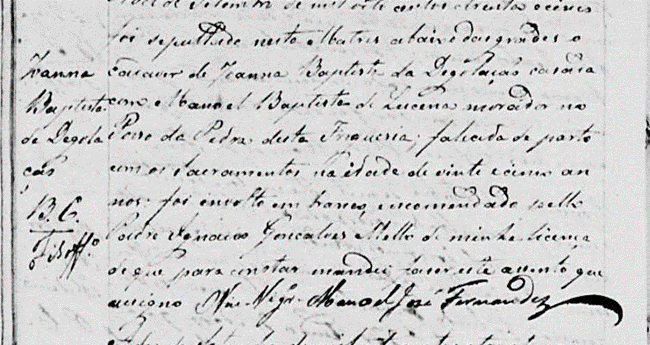 de Setembro de mil oito centos e trinta e cinco
foi sepultado nesta Matris abaixo das grades o
cadaver de Joanna Baptista da Degolaçaõ casada
com Manoel Baptista de Lucena morador no
Poço da Pedra desta Freguesia; falecida de parto
com os Sacramentos na idade de vinte e cinco an-
nos: foi envolto em branco, encomendado pello
Padre Ignacio Gonçalves Mello de minha licença
de que para constar mandei fazer este assento que
assigno
Manoel José Fernandez
Joanna
Baptista
de Degola
çaõ
B. C.